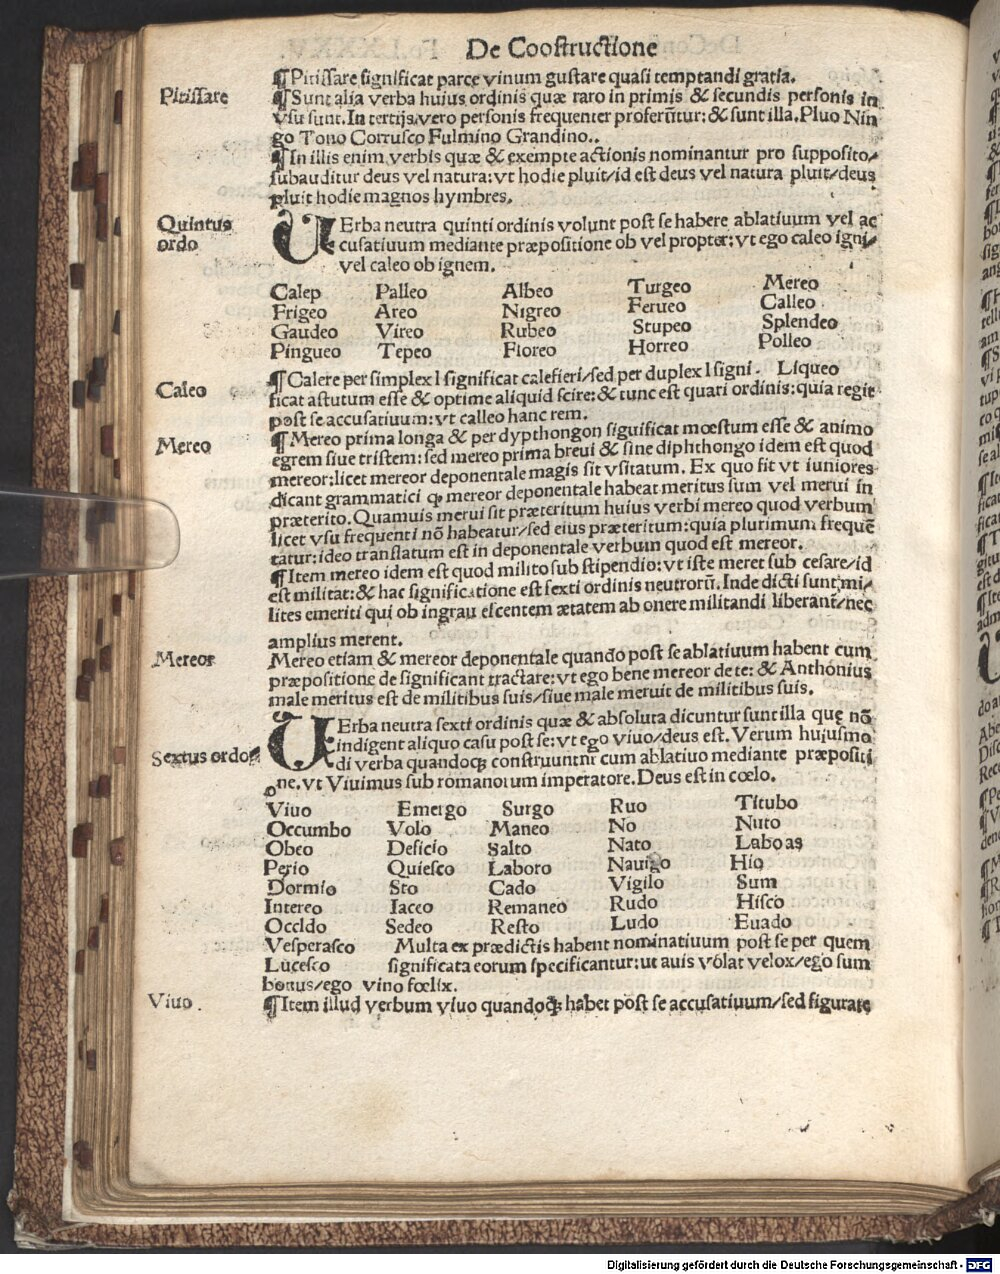 De Coostructione
Pitissare
¶Pitissare significat parce vinum gustare quasi temptandi gratia.
¶Sunt alia verba huius ordinis quæ raro in primis & secundis personis in
vsu sunt. In tertijs vero personis frequenter proferūtur: & sunt illa. Pluo Nin
go Tono Corrusco Fulmino Grandino..
¶In illis enim verbis quæ & exempte actionis nominantur pro supposito/
subauditur deus vel natura: vt hodie pluit/id est deus vel natura pluit/deus
pluit hodie magnos hymbres.
Quintus
ordo
VErba neutra quinti ordinis volunt post se habere ablatiuum vel ac
cusatiuum mediante præpositione ob vel propter: vt ego caleo igni/
vel caleo ob ignem.
Calep Palleo Albeo Turgeo Mereo
Frigeo Areo Nigreo Ferueo Calleo
Gaudeo Vireo Rubeo Stupeo Splendeo
Pingueo Tepeo Floreo Horreo Polleo
Caleo
¶Calere per simplex l significat calefieri/sed per duplex l signi. Liqueo
ficat astutum esse & optime aliquid scire: & tunc est quarti ordinis: quia regit
post se accusatiuum: vt calleo hanc rem.
Mereo
¶Mereo prima longa & per dypthongon significat mœstum esse & animo
egrem siue tristem: sed mereo prima breui & sine diphthongo idem est quod
mereor: licet mereor deponentale magis sit vsitatum. Ex quo fit vt iuniores
dicant grammatici ꝙ mereor deponentale habeat meritus sum vel merui in
præterito. Quamuis merui sit præteritum huius verbi mereo quod verbum
licet vsu frequenti nō habeatur/sed eius præteritum: quia plurimum frequē
tatur: ideo translatum est in deponentale verbum quod est mereor.
¶Item mereo idem est quod milito sub stipendio: vt iste meret sub cesare/id
est militat: & hac significatione est sexti ordinis neutrorū. Inde dicti sunt mi/
lites emeriti qui ob ingrauescentem ætatem ab onere militandi liberant̄/nec
amplius merent.
Mereor
Mereo etiam & mereor deponentale quando post se ablatiuum habent cum
præpositione de significant tractare: vt ego bene mereor de te: & Anthonius
male meritus est de militibus suis/siue male meruit de militibus suis.
Sextus ordo
VErba neutra sexti ordinis quæ & absoluta dicuntur sunt illa quę nō
indigent aliquo casu post se: vt ego viuo/deus est. Verum huiusmo
di verba quandoqꝫ construuntnr cum ablatiuo mediante præpositi
one. vt Viuimus sub romanorum imperatore. Deus est in cœlo.
Viuo Emergo Surgo Ruo Titubo
Occumbo Volo Maneo No Nuto
Obeo Deficio Salto Nato Laboas
Perio Quiesco Laboro Nauigo Hio
Dormio Sto Cado Vigilo Sum
Intereo Iaceo Remaneo Rudo Hisco
Occldo Sedeo Resto Ludo Euado
Vesperasco Multa ex prædictis habent nominatiuum post se per quem
Lucesco significata eorum specificantur: ut auis volat velox/ego sum
bonus/ego vino fœlix.
Viuo.
¶Item illud verbum viuo quandoqꝫ habet post se accusatiuum/sed figurate
Digitalisierung gefördert durch die Deutsche Forschungsgemeinschaft - DFG